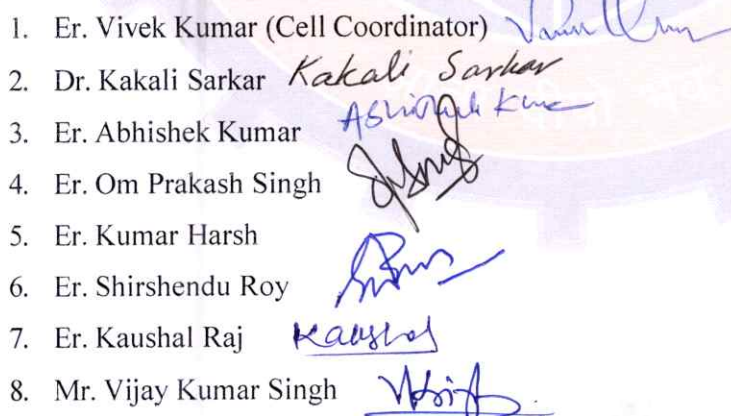 1. Er. Vivek Kumar (Cell Coordinator)
2. Dr. Kakali Sarkar Kakali Sarkar
3. Er. Abhishek Kumar
4. Er. Om Prakash Singh
5. Er. Kumar Harsh
6. Er. Shirshendu Roy
7. Er. Kaushal Raj Kaushal
8. Mr. Vijay Kumar Singh